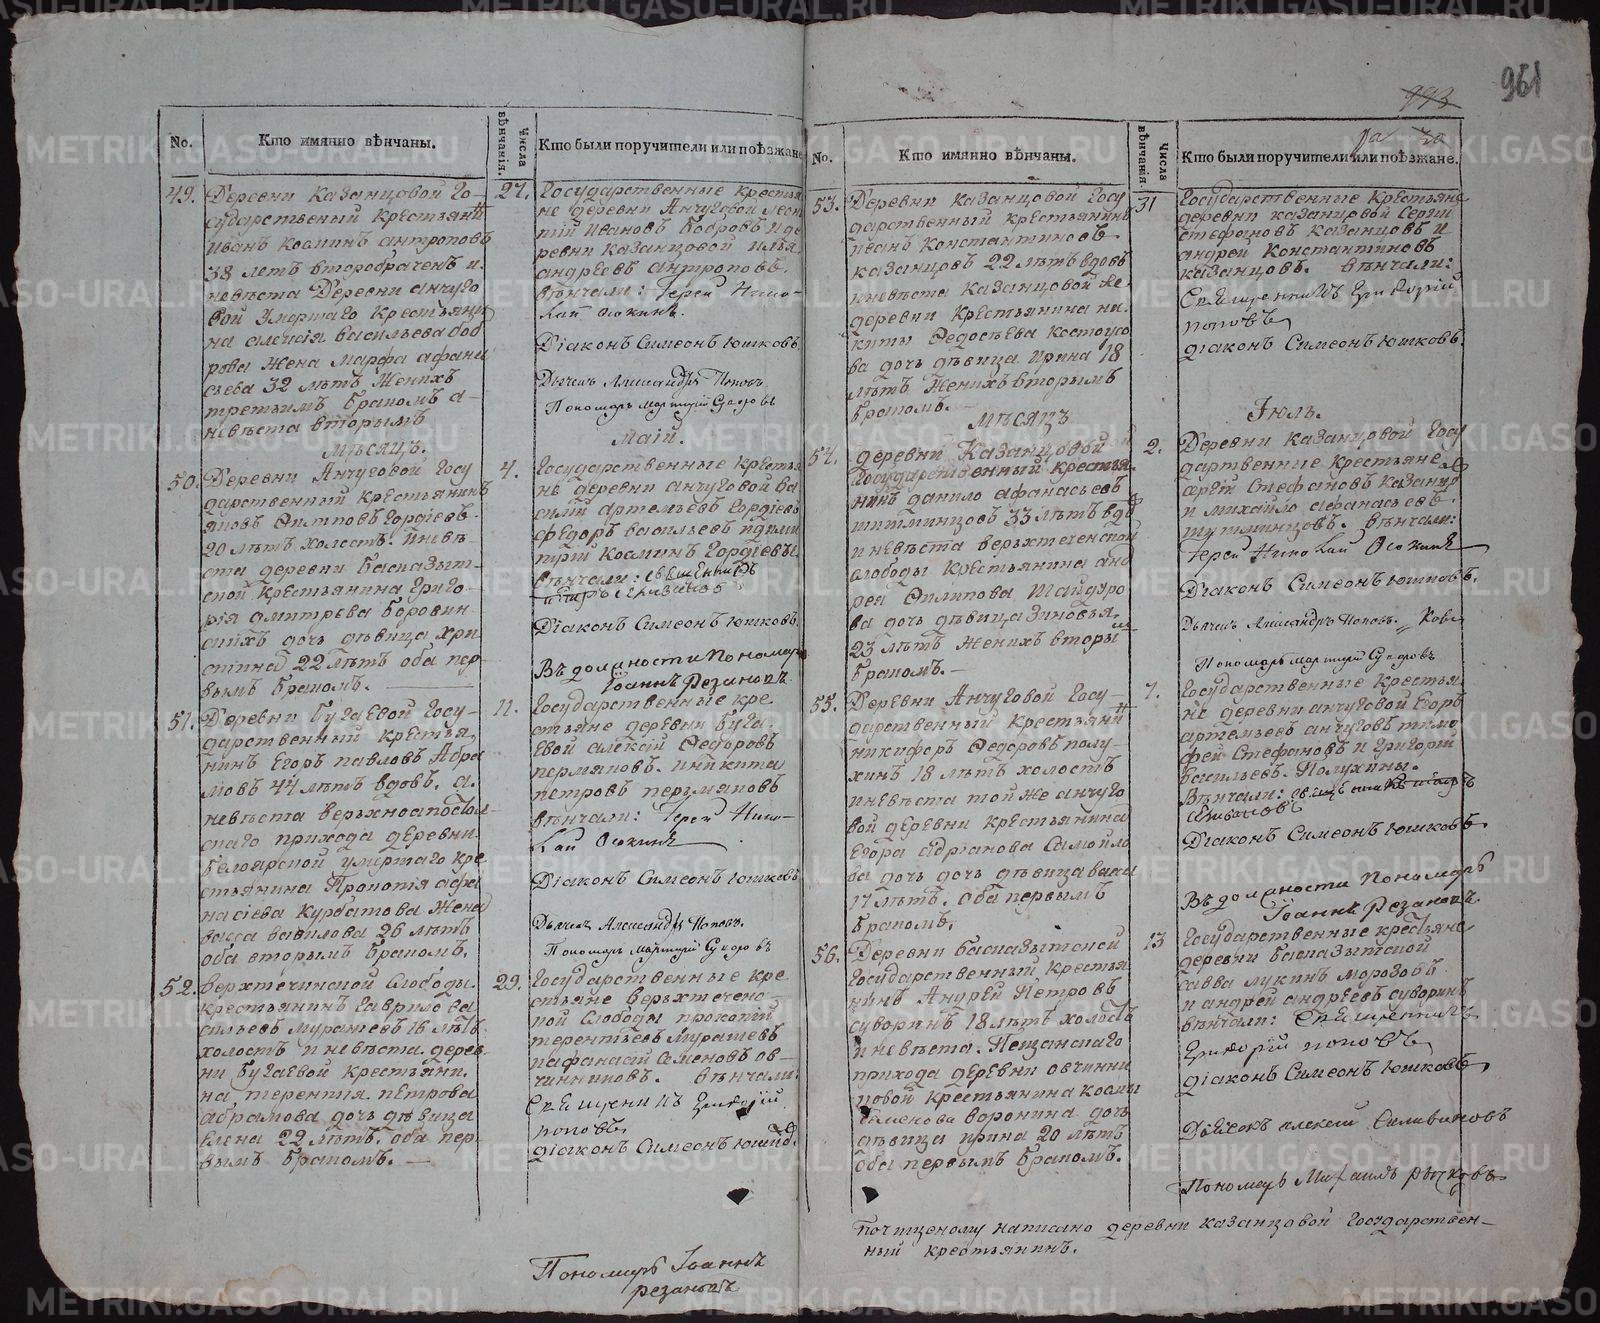 961
993
No.
Кто имянно вѣнчаны.
Числа вѣнчанія.
Кто были поручители или поѣзжане
49.
Деревни Казанцовой Го-
сударственый крестьянинъ
Иванъ Козминъ антроповъ
38 летъ второбраченъ и
невѣста Деревни анчуго
вой умершаго крестьяни
на алексія васильева боб
рова Жена марфа афана
сьева 32 лѣтъ Женихъ
третьимъ бракомъ а-
невѣста вторымъ
27.
Государственные крестья
не деревни Анчуговой леон
тій Ивановъ бобровъ и де
ревни казанцовой илья
андреевъ антроповъ.
вѣнчали: Іерей Нико-
лай Осокинъ.
Діаконъ Симеонъ Юшковъ.
Дьячекъ Александръ Поповъ.
Пономарь
мѣсяцъ.
Маій.
50.
Деревни Анчуговой Госу
дарственный крестьянинъ
яковъ Филиповъ Гордіевъ
20 лѣтъ холостъ. И невѣ-
ста деревни басказыт-
ской крестьянина Григо-
рія дмитрева боровин-
скихъ дочь дѣвица хри
стина 22 лѣтъ оба пер
вымъ бракомъ.
4.
Государственные крестья
не деревни анчуговой ва
силій артемьевъ Гордіевъ
федоръ васильевъ и дими
трій козминъ Гордіевы.
вѣнчали: священникъ
Діаконъ Симеонъ Юшковъ.
Въ должности пономаря
Іоаннъ Резановъ
51.
Деревни бугаевой Госу-
дарственный крестья
нинъ Егоръ павловъ Абра
мовъ 44 лѣтъ вдовъ. а.
невѣста
скаго прихода деревни
белоярской умершаго кре
стьянина Прокопія афа
насіева Курбатова Жена
васса вавилова 26 лѣтъ
оба вторымъ бракомъ.
11.
Государственные кре
стьяне деревни буга
евой алексій Федоровъ
пермяковъ. и никита
петровъ пермяковъ
вѣнчали: Іерей Нико-
лай Осокинъ
Діаконъ Симеонъ Юшковъ
Дьячекъ Александръ Поповъ.
Пономарь
52.
верхтеченской Слободы
крестьянинъ Гаврило ва
сильевъ Мурашевъ 16 лѣтъ
холостъ и невѣста дерев
ни бугаевой крестьяни.
на терентія петрова
абрамова дочь дѣвица
Елена 22 лѣтъ. оба пер
вымъ бракомъ.
29.
Государственные кре
стьяне верьхтечено
кой Слободы прокопій
терентьевъ Мурашевъ
и афанасій Семеновъ ов-
чинниковъ. вѣнчали:
Священникъ Григорій
поповъ
діаконъ Симеонъ Юшковъ
Пономарь Іоаннъ
резановъ
No.
Кто имянно вѣнчаны.
Числа вѣнчанія.
Кто были поручители или поѣзжане.
53.
Деревни казанцовой Госу
дарственный крестьянинъ
иванъ Константиновъ
казанцовъ 22 лѣтъ вдовъ
и невѣста казанцовой же
деревни крестьянина ни.
киты Федосѣева костоусо
ва дочь дѣвица Ирина 18
лѣтъ Женихъ вторымъ
бракомъ.
31
Государственные Крестьяне
деревни казанцовой Сергій
Стефановъ казанцовъ и
андрей Константиновъ
казанцовъ. вѣнчали:
Священникъ Григорій
поповъ
діаконъ Симеонъ Юшковъ.
мѣсяцъ
Іюль.
54.
деревни Казанцовой
Государственный крестья.
нинъ данило афанасьевъ
33 лѣтъ вдовъ
и невѣста верьхтеченской
слободы крестьянина анд
рея Филипова Шайдуро
ва дочь дѣвица Зиновья
23 лѣтъ Женихъ вторы
бракомъ.
2.
Деревни казанцовой Госу
дарственные крестьяне
сергій Стефановъ казанцовъ
и михайло афанасьевъ
вѣнчали:
Іерей Николай Осокинъ
Діаконъ Симеонъ Юшковъ.
Дьячекъ Александръ Поповъ.
Пономарь
55.
Деревни Анчуговой Госу-
дарственный крестьянинъ
никифоръ Федоровъ полу-
хинъ 18 лѣтъ холостъ
и невѣста той же анчуго
вой деревни крестьянина
Егора адріанова Самойло
ва дочь дочь дѣвица васса
17 лѣтъ. оба первымъ
бракомъ.
7.
Государственные крестья
не деревни анчуговой Егоръ
артемьевъ анчуговъ тимо
фей Стефановъ и Григорій
васильевъ. Полухины.
Вѣнчали:
Діаконъ Симеонъ Юшковъ.
Въ должности пономаря
Іоаннъ Резановъ
56.
Деревни басказытской
Государственный крестья
нинъ Андрей Петровъ
суворинъ 18 лѣтъ холостъ
и невѣста. Пещанскаго
прихода деревни овчинни
ковой крестьянина козмы
Семенова воронина дочь
дѣвица ирина 20 лѣтъ
оба первымъ бракомъ.
13
Государственные крестьяне
деревни басказытской
савва лукинъ морозовъ
и андрей андреевъ суворинъ
вѣнчали: Священникъ
Григорій поповъ
діаконъ Симеонъ Юшковъ
Дьячекъ алексей Селивановъ
Пономарь Михаилъ рычковъ
По чищеному написано деревни казанцовой Государствен-
ный крестьянинъ.
METRIKI.GASO-URAL.RU